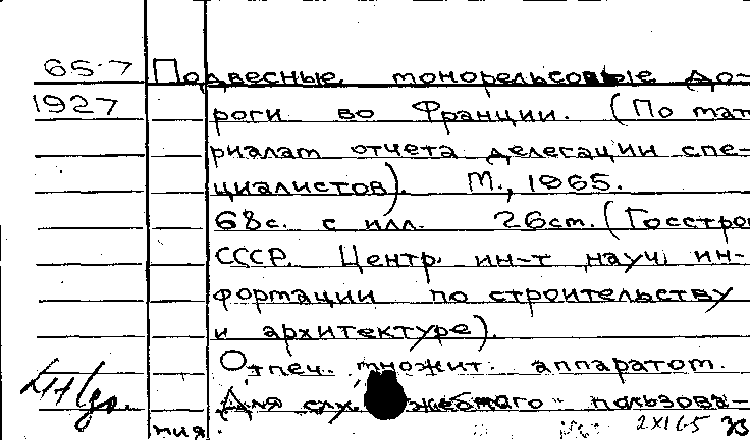 65-7 Подвесные монорельсовые до-
1927 роги во Франции. (По мат
риалам отчета делегации спе-
циалистов). М., 1965.
68с. с илл. 26см. (Госстро
СССР. Центр. ин-т науч. ин-
формации по строительству
и архитектуре).
Отпеч. множит. аппаратом.
Для служебного пользова-
ния.
2XI65